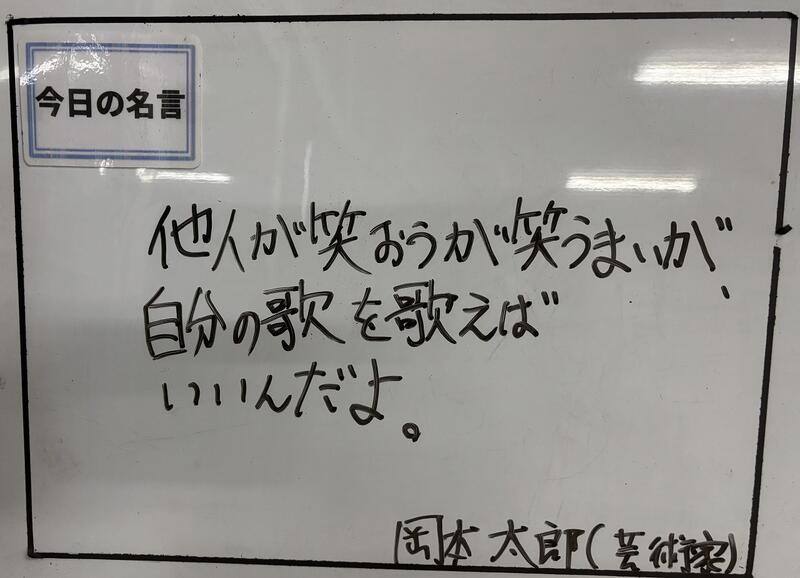 今日の名言
他人が笑おうが笑うまいが、
自分の歌を歌えば
いいんだよ。
岡本太郎(芸術家)